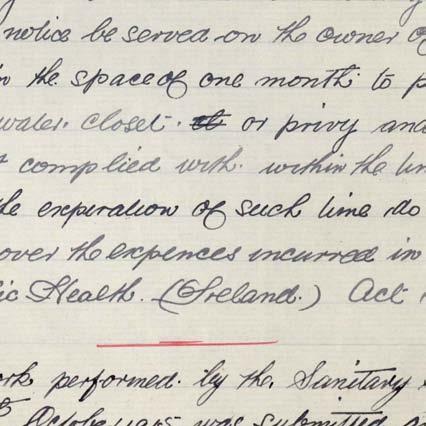 notice be served on the owner
the space of one month to
water closet. or privy and
complied with within the
the experation of such time do
over the expences incurred in
Health. (Ireland.) Act
performed by the Sanitary
was submitted